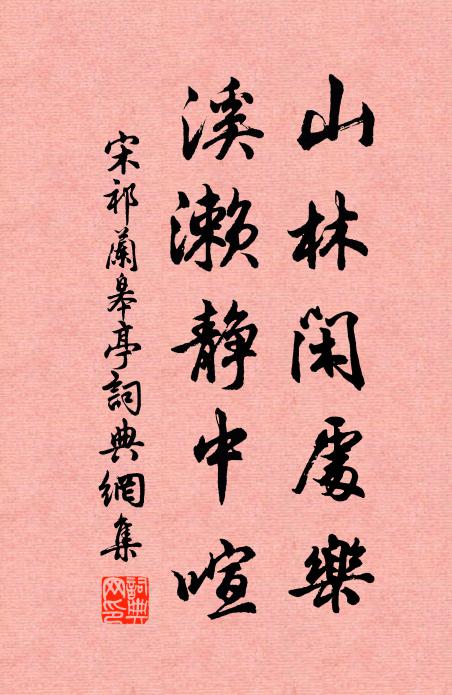 山林閑處樂
溪瀨靜中喧
宋祁蘭皋亭詞典網集
詞典网印